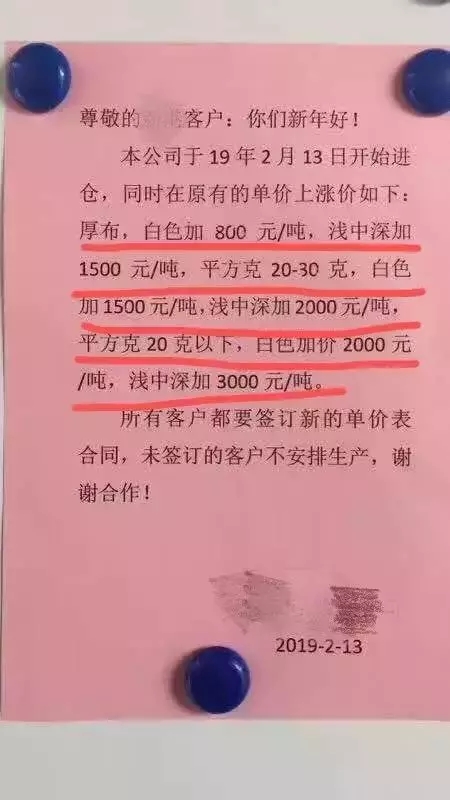 尊敬的客户：你们新年好！
本公司于19年2月13日开始进
仓，同时在原有的单价上涨价如下：
厚布，白色加 800 元/吨，浅中深加
1500 元/吨，平方克 20-30 克，白色
加1500元/吨,浅中深加2000元/吨，
平方克20克以下，白色加价2000元
/吨，浅中深加3000元/吨。
所有客户都要签订新的单价表
合同，未签订的客户不安排生产，谢
谢合作！
2019-2-13